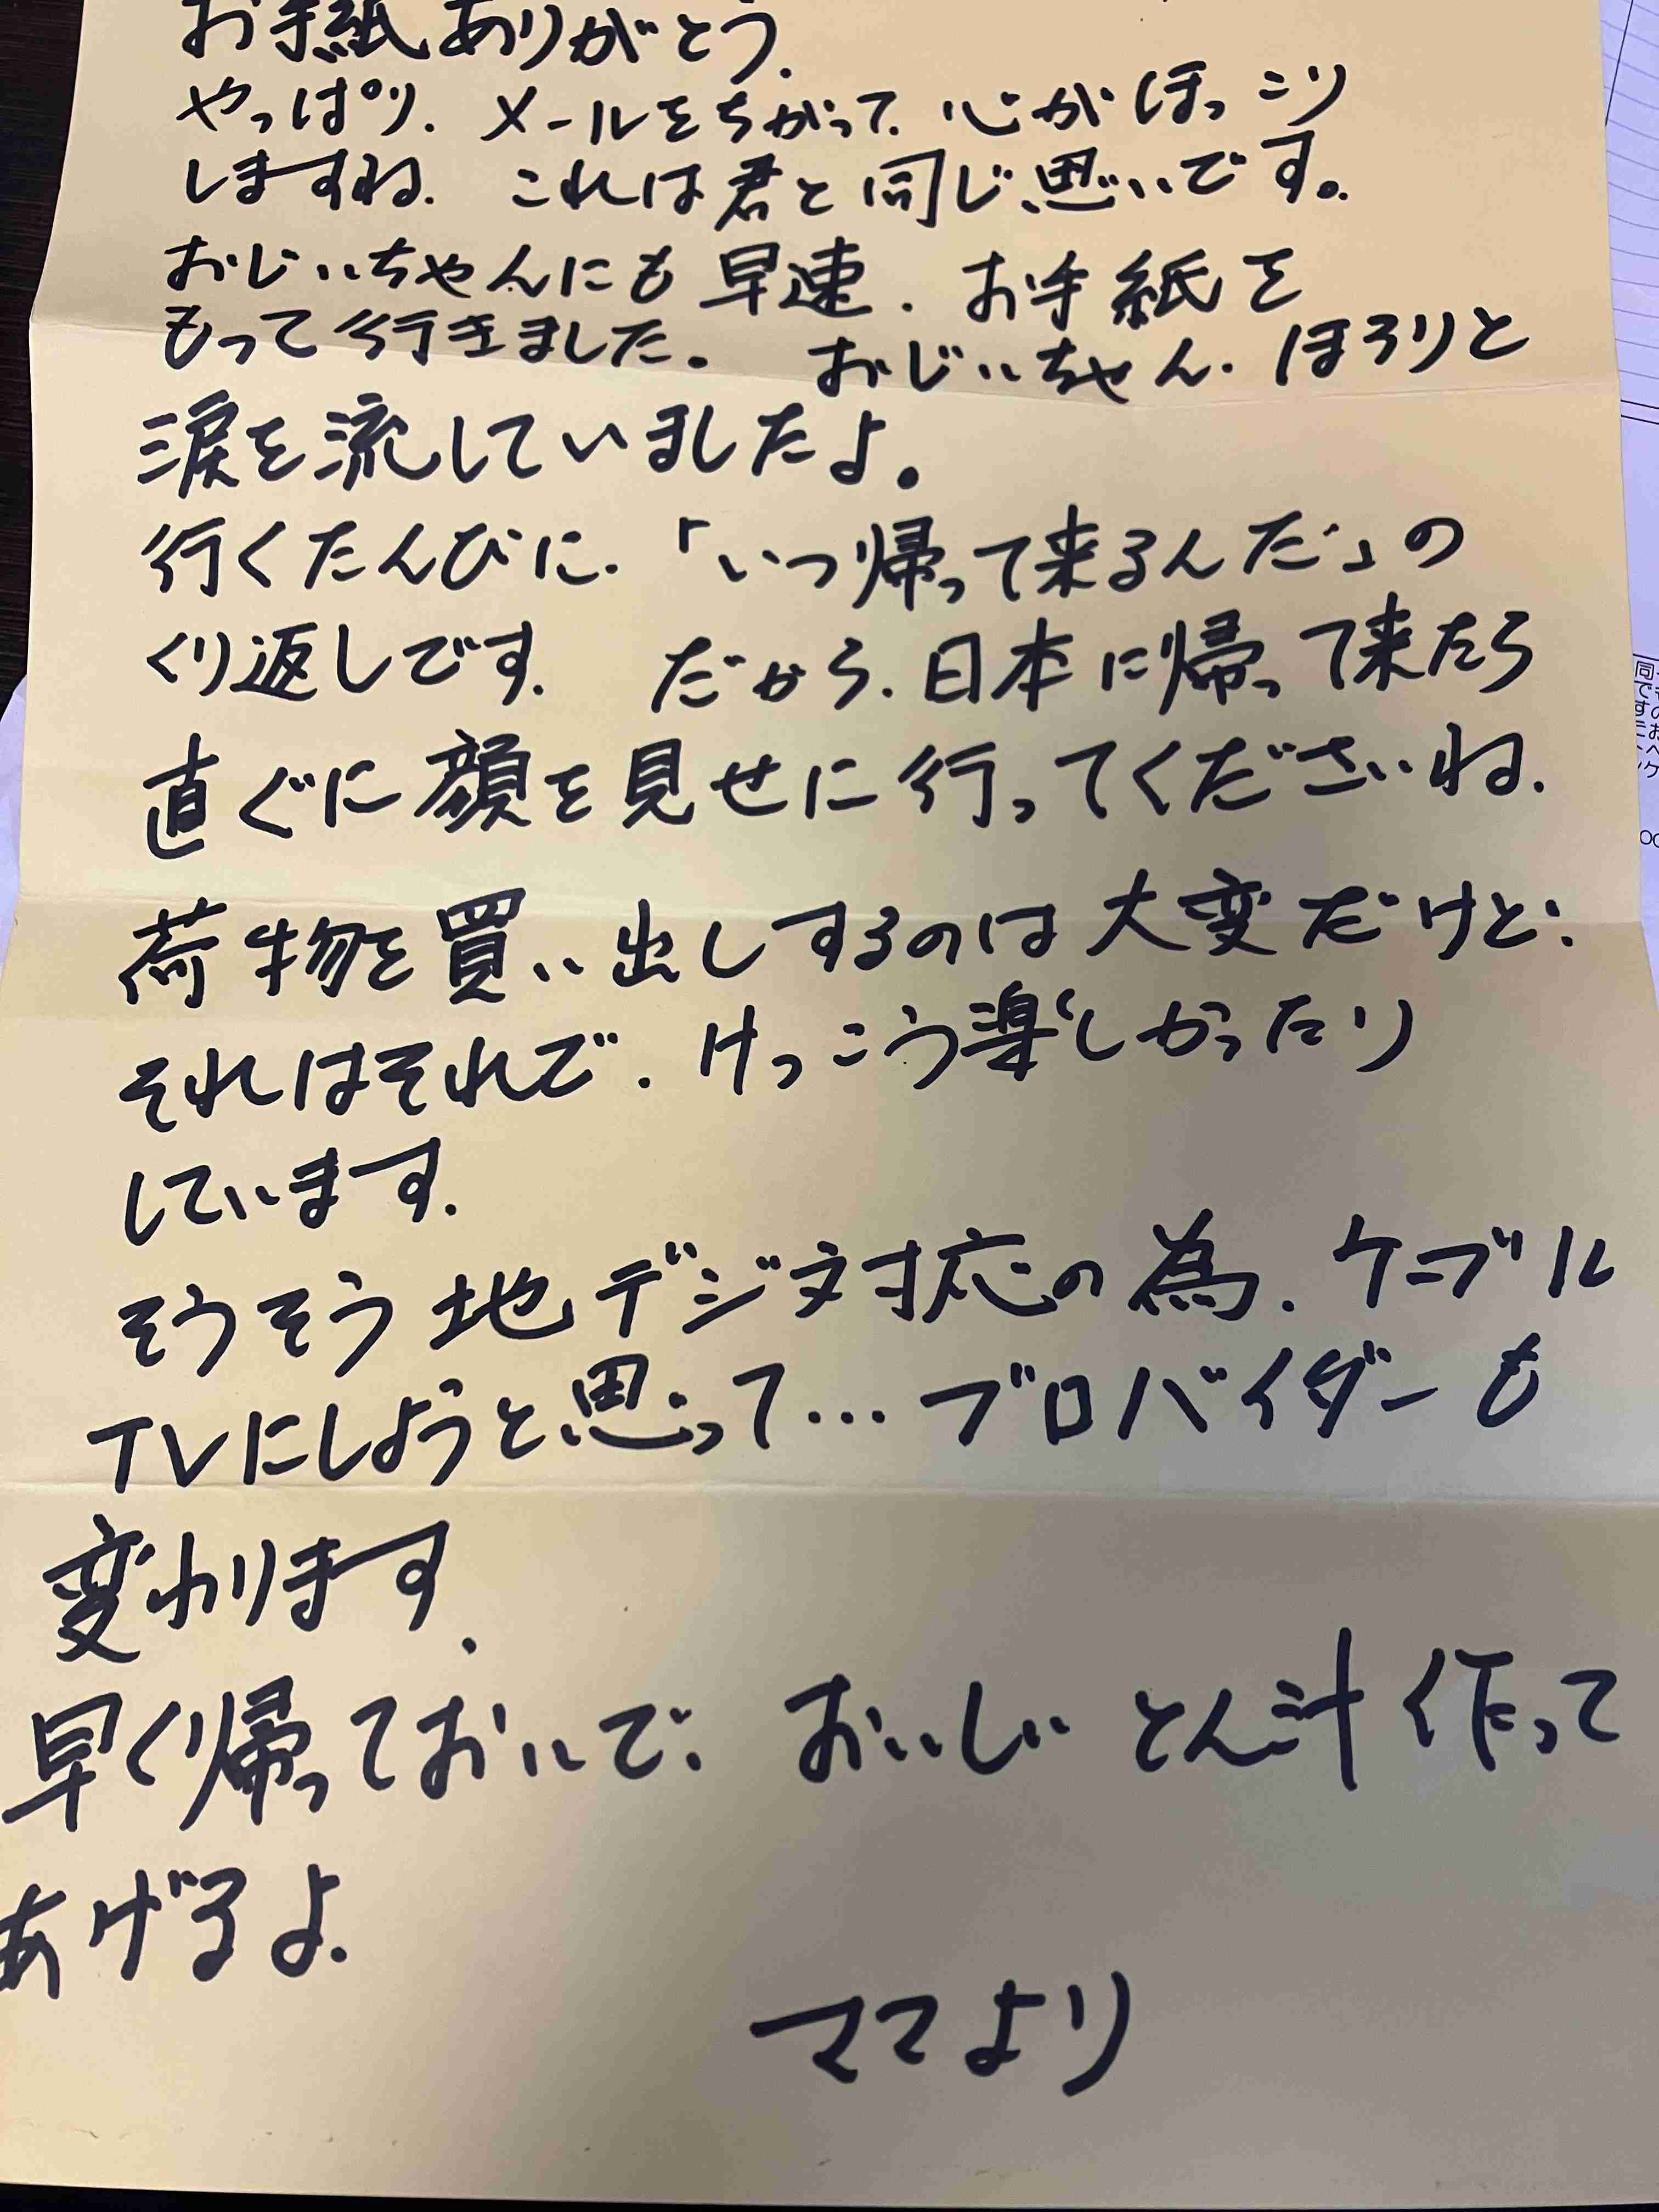 お手紙ありがとう.
やっぱり. メールとちがって. 心がほっこり
しますね. これは君と同じ思いです。
おじいちゃんにも早速. お手紙を
もって行きました。 おじいちゃん. ほろりと
涙を流していましたよ。
行くたんびに. 「いつ帰って来るんだ」の
くり返しです. だから. 日本に帰って来たら
直ぐに顔を見せに行ってくださいね.
荷物を買い出しするのは大変だけど.
それはそれで. けっこう楽しかったり
しています.
そうそう地デジ対応の為. ケーブル
TVにしようと思って... プロバイダーも
変わります.
早く帰っておいで. おいしい とん汁作って
あげるよ.
ママより